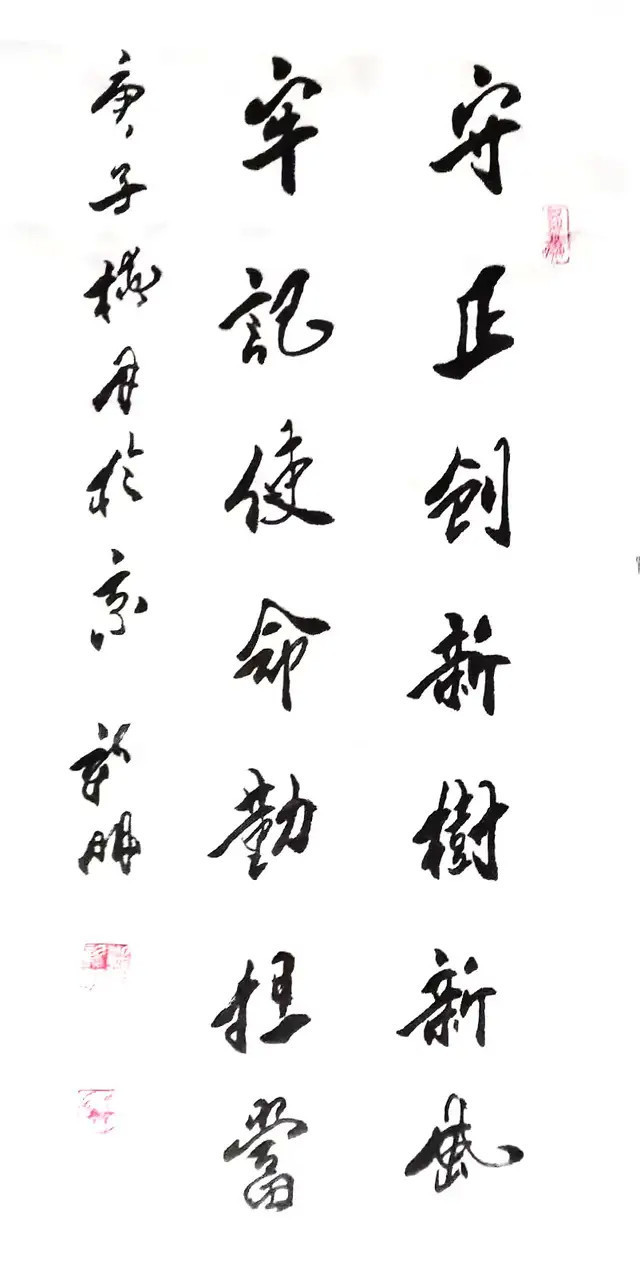 守正創新樹新風
牢記使命勤担當
庚子月於京